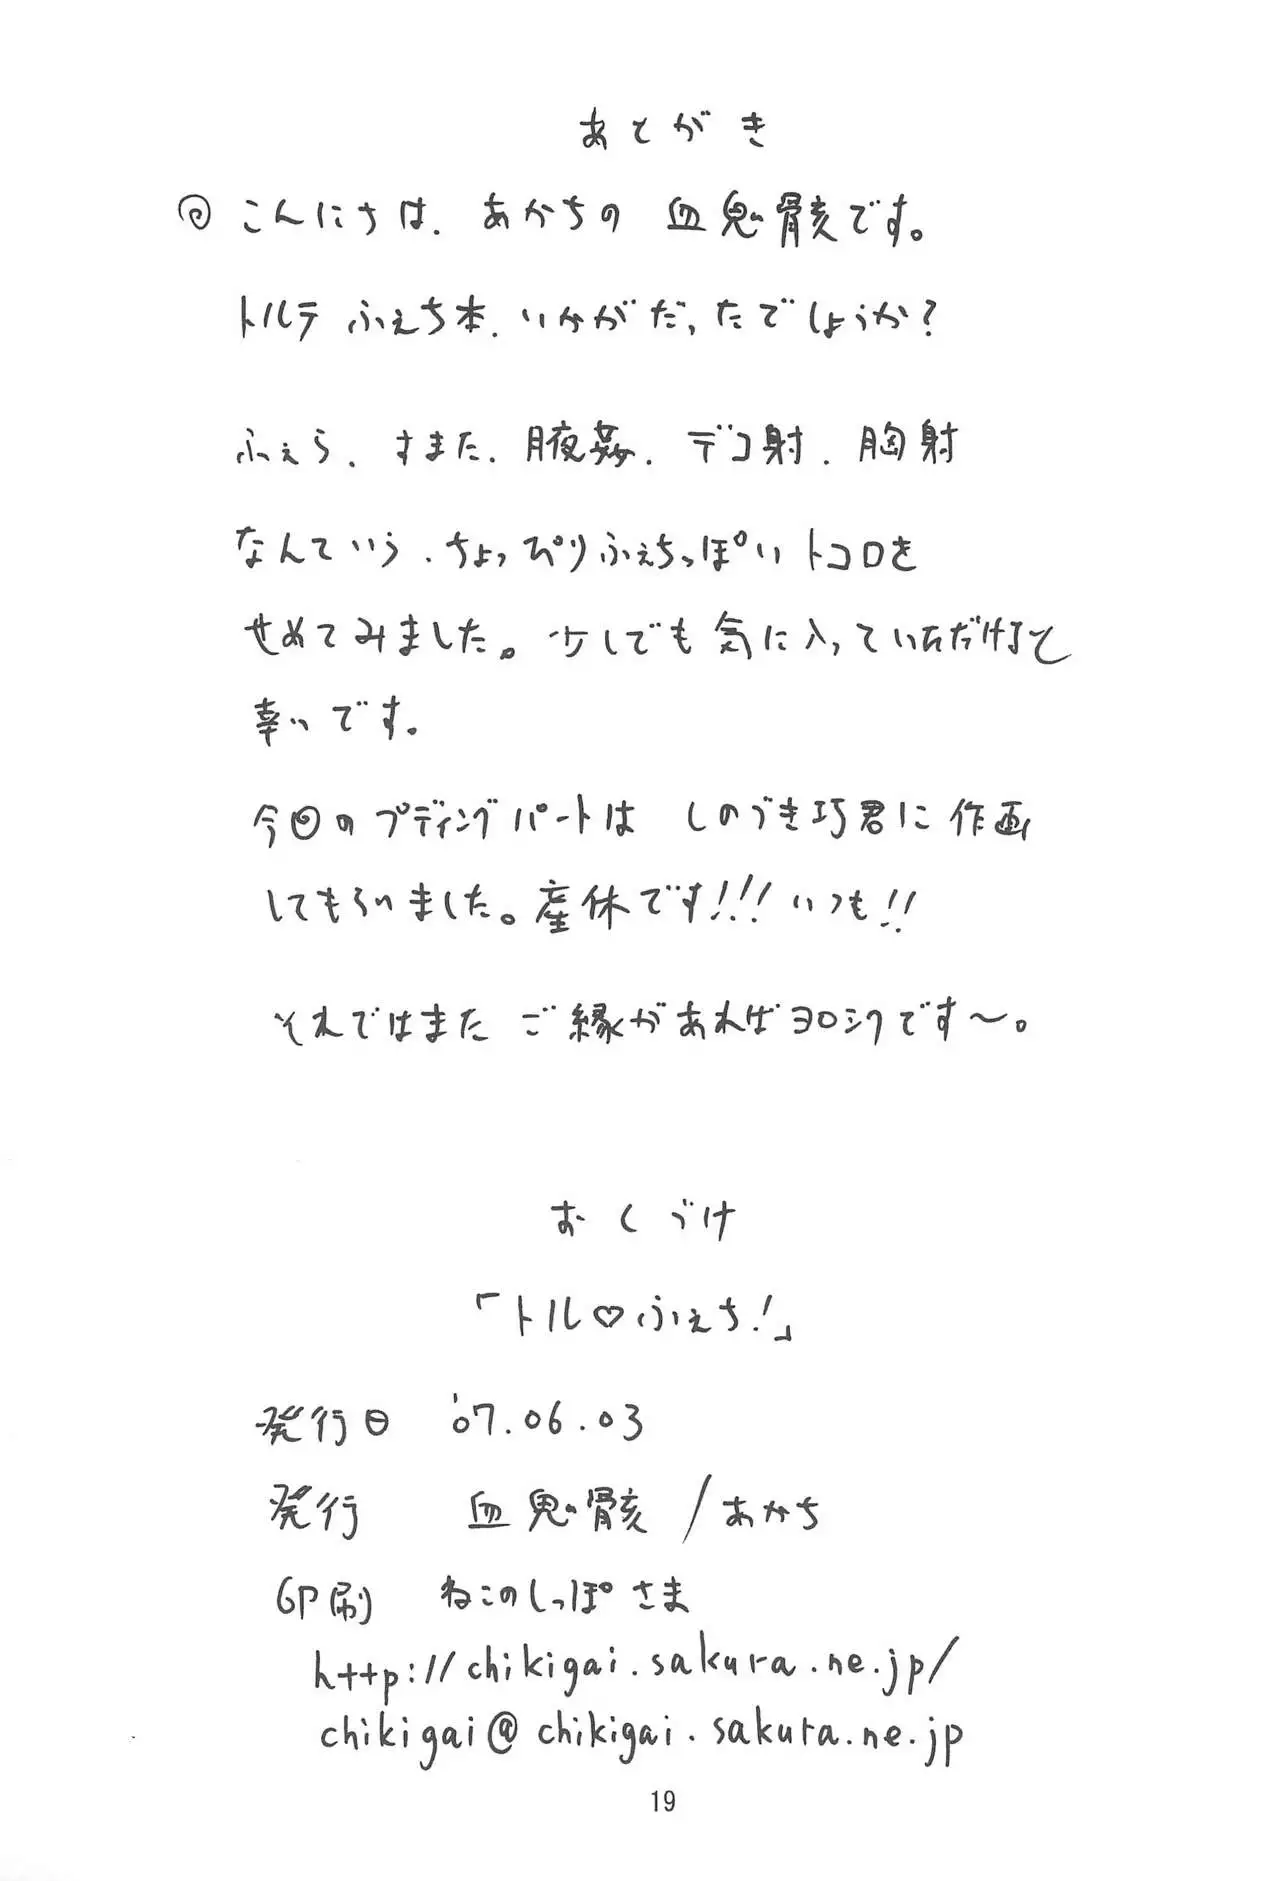 あとがき
◎ こんにちは、あかちの 血鬼骸です。
トルテ ふぇち本、いかがだったでしょうか?
ふぇら、すまた、腋姦、デコ射、胸射
なんていう、ちょっぴりふぇちっぽいトコロを
せめてみました。少しでも気に入っていただけると
幸いです。
今回のプディングパートは しのづき巧君に作画
してもらいました。産休です!!! いつも!!
それではまた ご縁があればヨロシクです〜。
おくづけ
「トル♡ふぇち!」
発行日 '07.06.03
発行 血鬼骸/あかち
印刷 ねこのしっぽさま
http://chikigai.sakura.ne.jp/
chikigai@chikigai.sakura.ne.jp
19